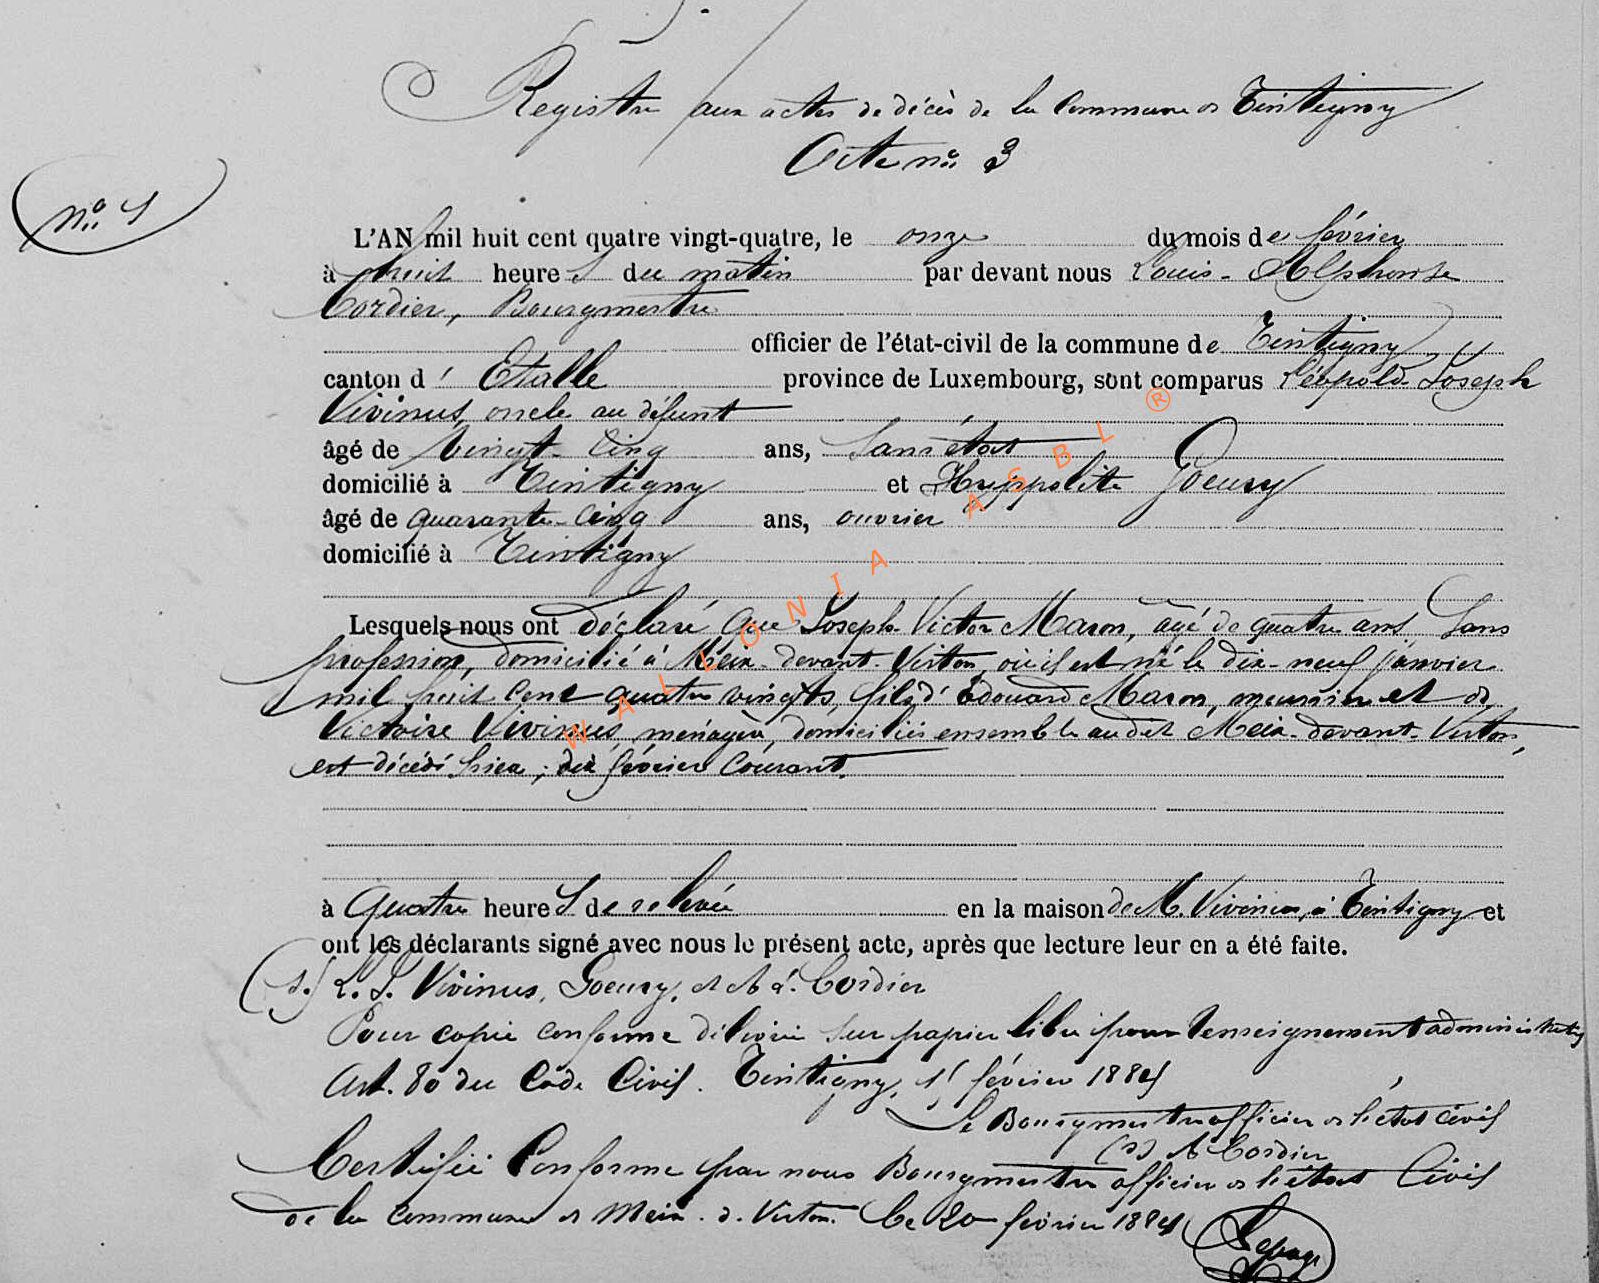 Registre aux actes de décès de la Commune de Tintigny
Acte no 3
No
L'AN mil huit cent quatre vingt-quatre, le onze du mois de février
à huit heures du matin par devant nous Louis-Alphonse
Cordier, Bourgmestre
officier de l'état-civil de la commune de Tintigny
canton d'Etalle province de Luxembourg, sont comparus Léopold-Joseph
Vivinus, oncle au défunt
âgé de vingt-cinq ans, sans état
domicilié à Tintigny et Hyppolite Goeury
âgé de quarante-cinq ans, ouvrier
domicilié à Tintigny
Lesquels nous ont déclaré que Joseph-Victor Maron, âgé de quatre ans Sans
profession, domicilié à Meix-devant-Virton, où il est né le dix-neuf janvier
mil huit cent quatre vingts, fils d'Edouard Maron, meunier et de
Victoire Vivinus, ménagère, domiciliés ensemble audit Meix-devant-Virton,
est décédé hier, dix février courant.
à quatre heures de relevée en la maison de M. Vivinus, à Tintigny et
ont les déclarants signé avec nous le présent acte, après que lecture leur en a été faite.
(s.) L. J. Vivinus, Goeury, et A. Cordier
Pour copie conforme délivrée sur papier libre pour renseignement administratif
Art. 80 du Code Civil. Tintigny, février 1884
Le Bourgmestre officier de l'état civil
(s) A Cordier
Certifié Conforme par nous Bourgmestre officier de l'état Civil
de la commune de Meix-d.-Virton. Le 20 février 1884
Lepage
WALLONIA ASBL ®